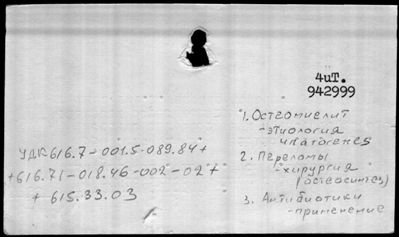 4иT.
942999
1. Остеомиелит
- этиология
и патогенез
УДК 616.7-001.5-089.84+
+616.71-018.46-002-02"+
+ 615.33.03
2. Переломы
- хирургия
(остеосинтез)
3. Антибиотики
- применение